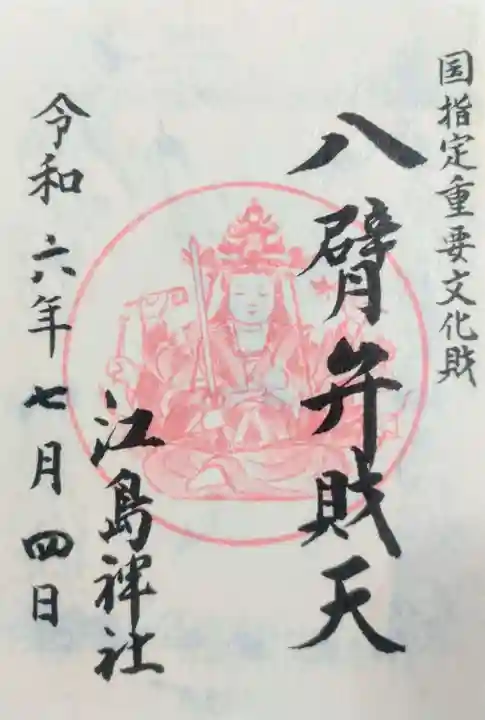 国指定重要文化財
八臂弁財天
江島神社
令和六年七月四日